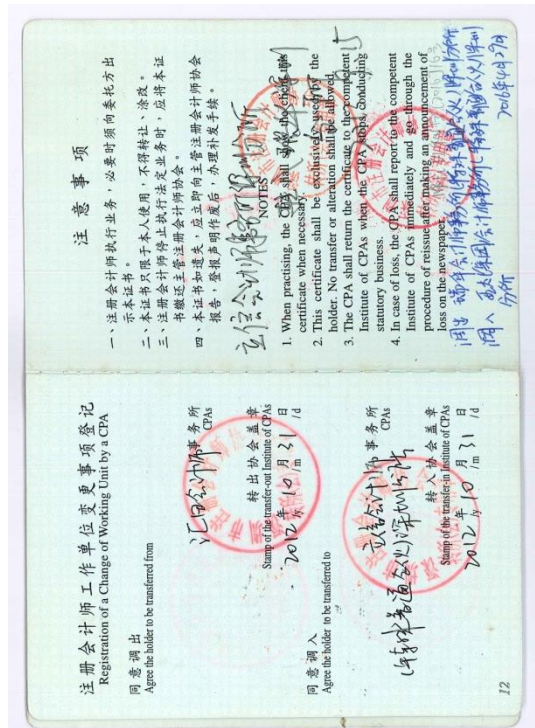 注册会计师工作单位变更事项登记
Registration of a Change of Working Unit by a CPA
同意调出
Agree the holder to be transferred from
汇田会计师
事务所
CPAs
转出协会盖章
Stamp of the transfer-out Institute of CPAs
2012年10月31日
/y /m /d
同意调入
Agree the holder to be transferred to
立信会计师
事务所
CPAs
(特殊普通合伙)深圳分所
转入协会盖章
Stamp of the transfer-in Institute of CPAs
2012年10月31日
/y /m /d
12
注意事项
一、注册会计师执行业务，必要时须向委托方出
示本证书。
二、本证书只限于本人使用，不得转让、涂改。
三、注册会计师停止执行法定业务时，应将本证
书缴还主管注册会计师协会。
四、本证书如遗失，应立即向主管注册会计师协会
报告，登报声明作废后，办理补发手续。
立信会计师事务所
NOTES
1. When practising, the CPA shall show the client this
certificate when necessary.
2. This certificate shall be exclusively used by the
holder. No transfer or alteration shall be allowed.
3. The CPA shall return the certificate to the competent
Institute of CPAs when the CPA stops conducting
statutory business.
4. In case of loss, the CPA shall report to the competent
Institute of CPAs immediately and go through the
procedure of reissue after making an announcement of
loss on the newspaper.
调出
会计师事务所(特殊普通合伙)深圳分所
调入
会计师事务所(特殊普通合伙)深圳
分所
2016年4月29日